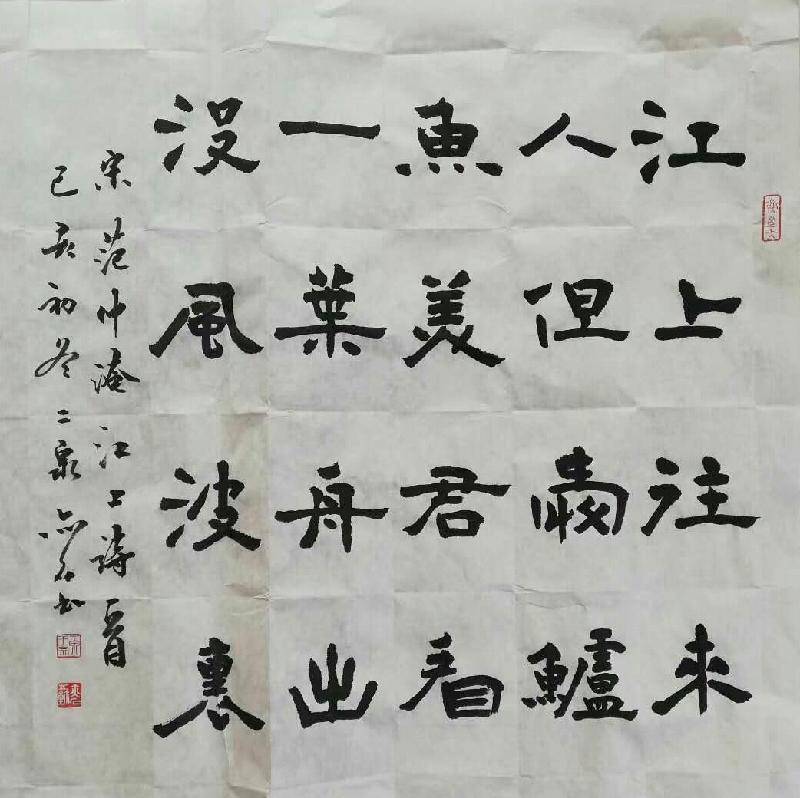 江上往来
人但愛鱸
魚美君看
一葉舟出
没風波裏
宋范仲淹江上詩一首
己亥初冬二泉
书